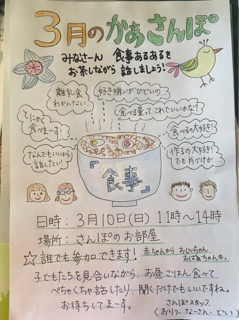 3月のかあさんぽ
みなさーん 食事あるあるを
お茶しながら話しましょう!
離乳食
わかんない
好き嫌いがひどいの
とにかく
食べまーす!
食べる量ってこれでいいかな?
食べるの大好き!
なんでもいいから
話したい!
作るの大好き!
でも片づけが…
「食事」
日時:3月10日(日)11時〜14時
場所:さんぽのお部屋
☆誰でも参加できます!
赤ちゃんから おじいちゃん
おばあちゃんも。
子どもたちを見合いながら、お昼ごはん食べて
ぺちゃくちゃ話したり、聞くだけでもいいですね。
お待ちしてまーす。
さんぽスタッフ